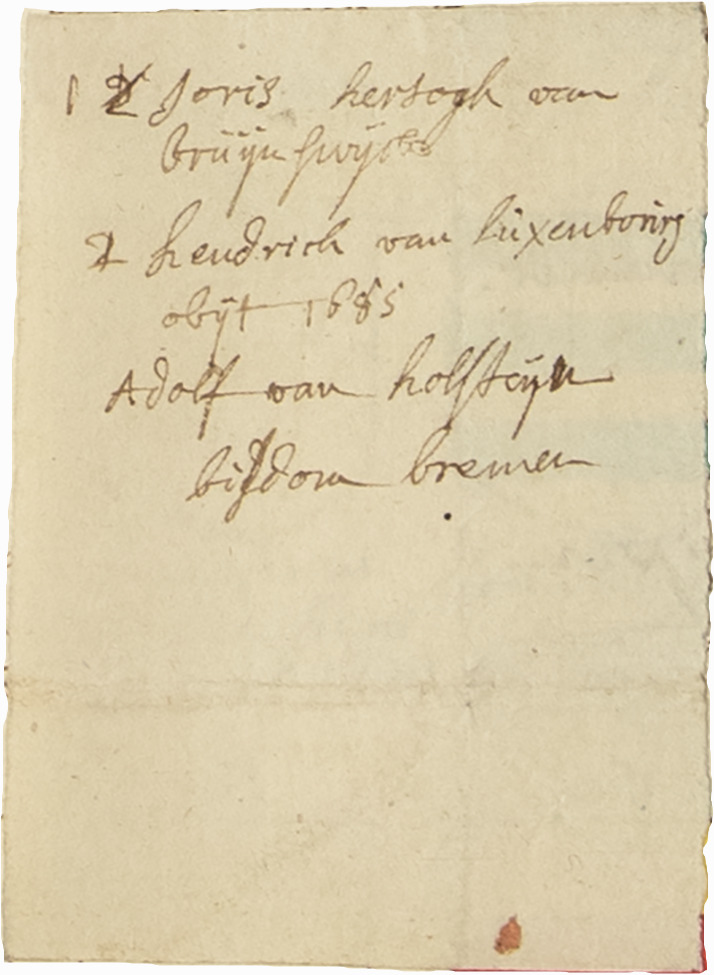 1 Joris hertogh van
brüÿnswÿck
2 hendrick van lüxenborirg
obÿt 1685
Adolf van holsteÿn
bisdom bremen